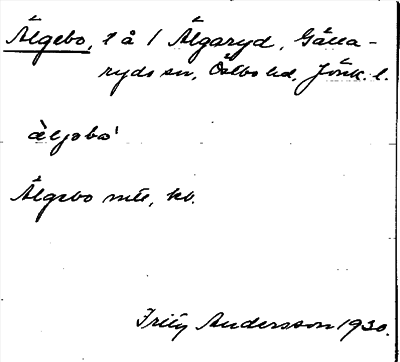 Älgebo, l å / Älgaryd, Gälla-
ryds sn, Östbo hd, Jönk. l.
äljabo'
Älgebo mtl, kb.
Fritz Andersson 1930.